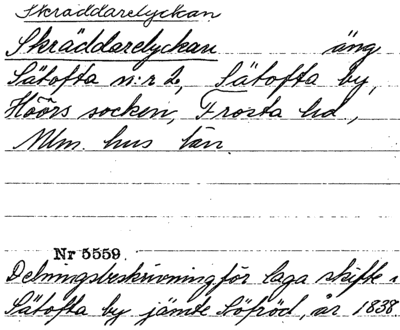 Skräddarelyckan
Skräddarelyckan äng
Sätofta n:r 2, Sätofta by,
Höörs socken, Frosta hd,
Mlm. hus län.
Nr 5559.
Delningsbeskrivning för laga skifte i
Sätofta by jämte Söfröd, år 1838.